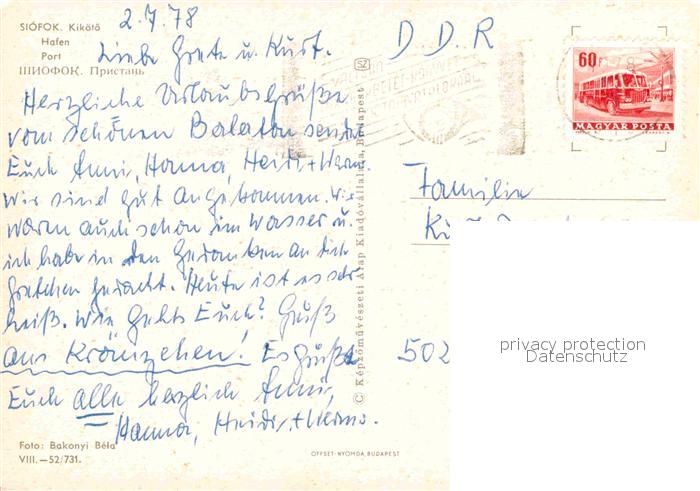 SIÓFOK. Kikötő
Hafen
Port
ШИОФОК. Пристань
2.7.78
Liebe Grete u. Kurt.
Herzliche Urlaubsgrüße
vom schönen Balaton senden
Euch Anni, Hanna, Heidi, + Werner.
Wir sind gut angekommen. Wir
waren auch schon im Wasser u.
ich habe in den Gedanken an dich
Gretchen gedacht. Heute ist es sehr
heiß. Wie gehts Euch? Gruß
aus Kränzchen! Es grüßt
Euch alle herzlich Anni,
Hanna, Heidi, + Werner.
Foto: Bakonyi Béla
VIII.—52/731.
© Képzőművészeti Alap Kiadóvállalata, Budapest
SZ
OFFSET-NYOMDA, BUDAPEST
D. D. R
60f
MAGYAR POSTA
Familie
502
privacy protection
Datenschutz